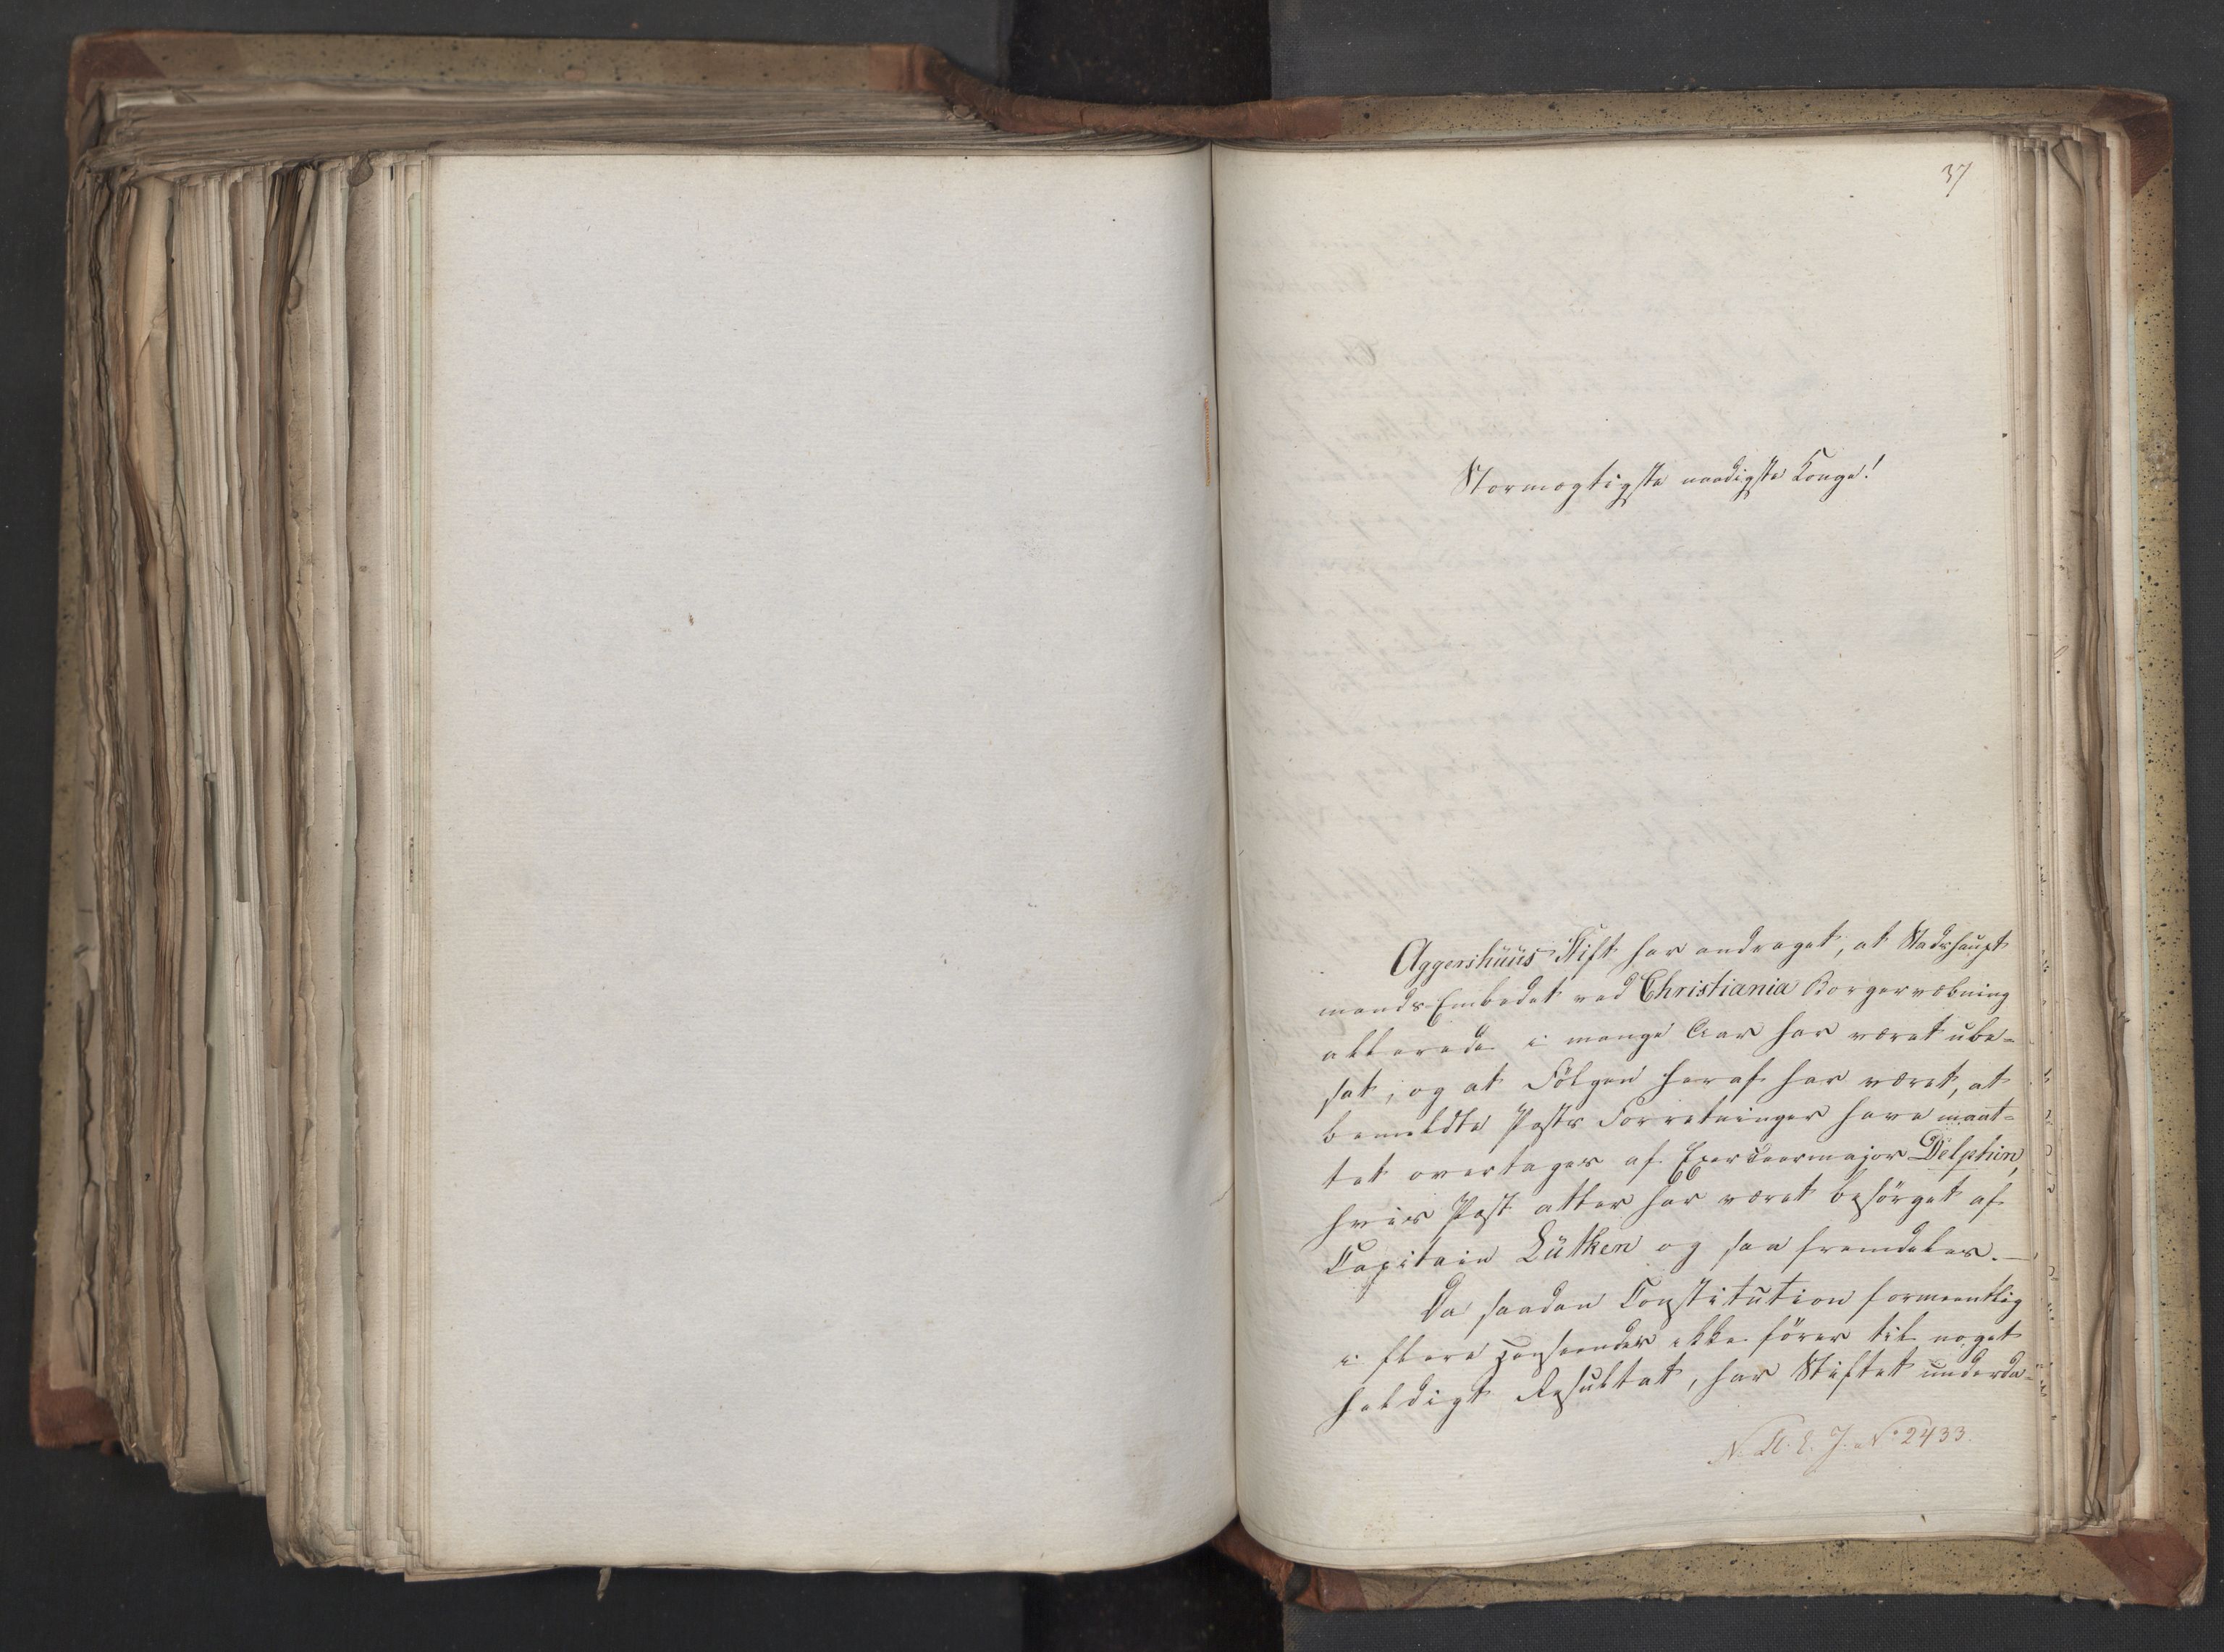 37
Stormægtigste naadigste Konge!
Aggershuus Stift har andraget, at Stadshaupt
mands-Embedet ved Christiania Borgervæbning
allerede i mange Aar har været ube-
sat, og at Følgen heraf har været, at
bemeldte Posts Forretninger have maat-
tet overtages af Exerceermajor Delphin,
hvis Post atter har været besörget af
Capitain Lütken og saa fremdeles.—
Da saadan Constitution formeentlig
i flere Henseender ikke förer til noget
heldigt Resultat, har Stiftet underda-
No 2433.